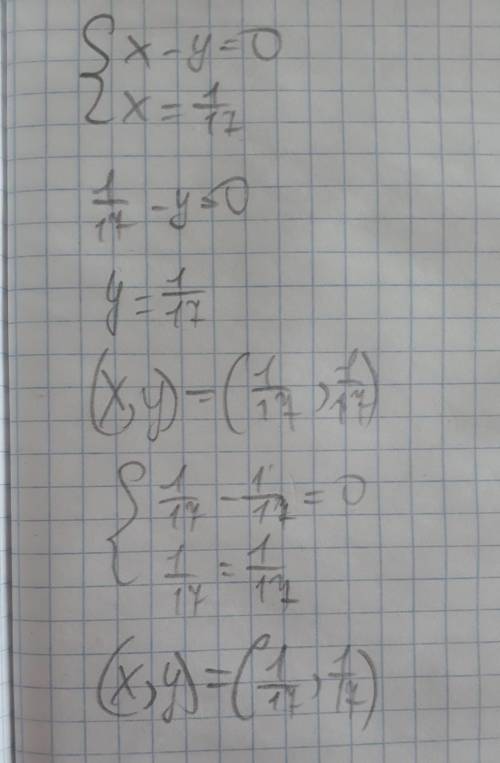 { x - y = 0
x = 1/17
1/17 - y = 0
y = 1/17
(x, y) = (1/17, 1/17)
{ 1/17 - 1/17 = 0
1/17 = 1/17
(x, y) = (1/17, 1/17)